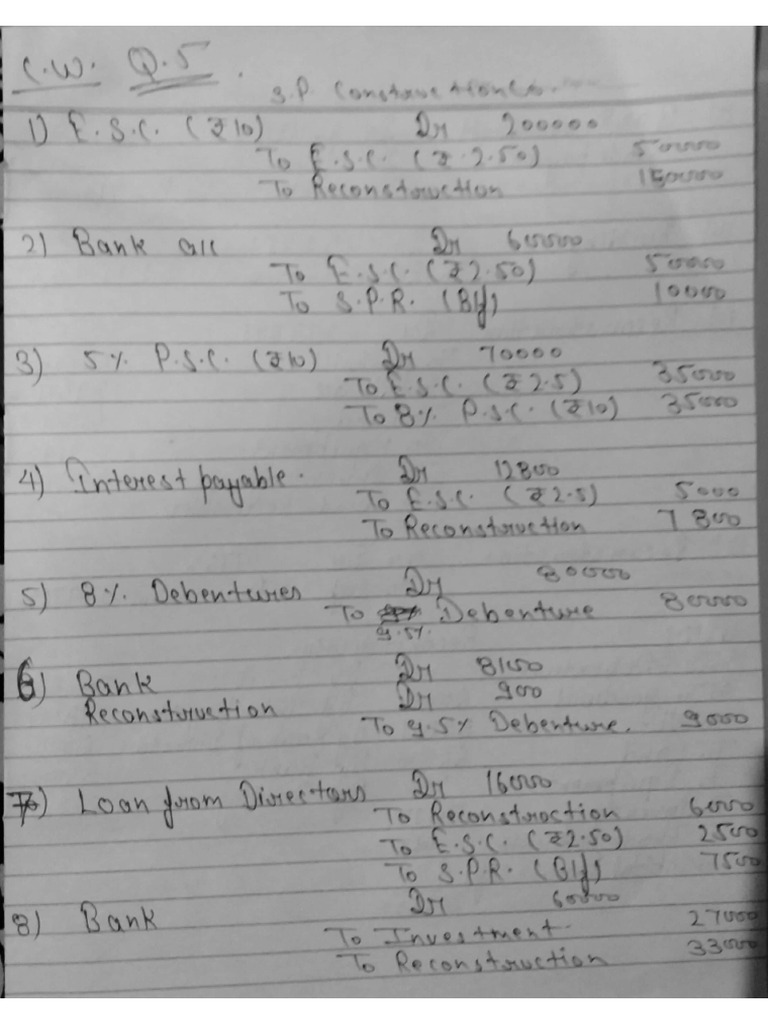 C.W. Q.5.
S.P. Construction Co.
1) E.S.C. (₹10) Dr 200000
To E.S.C. (₹ 2.50) 50000
To Reconstruction 150000
2) Bank a/c Dr 60000
To E.S.C. (₹2.50) 50000
To S.P.R. (B/f) 10000
3) 5% P.S.C. (₹10) Dr 70000
To E.S.C. (₹2.5) 35000
To 8% P.S.C. (₹10) 35000
4) Interest payable. Dr 12800
To E.S.C. (₹2.5) 5000
To Reconstruction 7800
5) 8% Debentures Dr 80000
To 9.5% Debenture 80000
6) Bank Dr 8100
Reconstruction Dr 900
To 9.5% Debenture. 9000
7) Loan from Directors Dr 16000
To Reconstruction 6000
To E.S.C. (₹2.50) 2500
To S.P.R. (B/f) 7500
8) Bank Dr 60000
To Investment 27000
To Reconstruction 33000